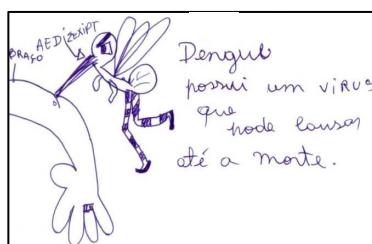 BRAÇO
AEDIZEXIPT
Dengue
possui um vírus
que
pode causar
até a morte.